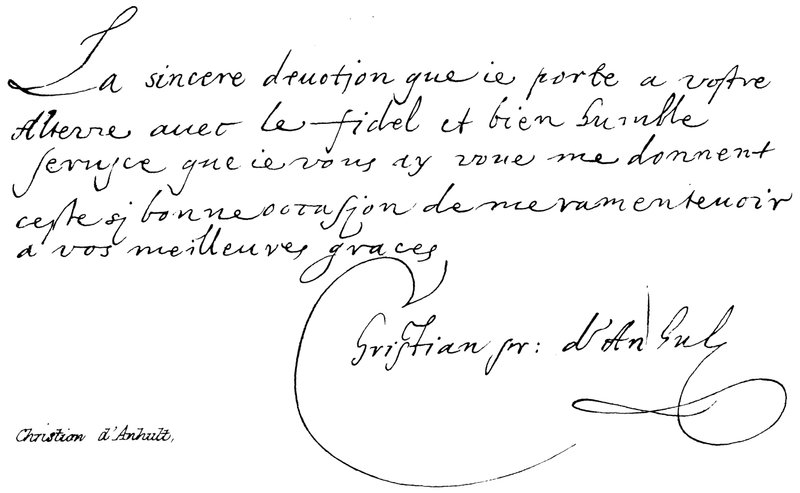 La sincere deuotion que ie porte a vostre
Alterre auec le fidel et bien humble
seruice que ie vous ay voue me donnent
ceste sy bonne occasion de me ramenteuoir
a vos meilleures graces
Christian pr: d'Anhalt
Christion d'Anhult,